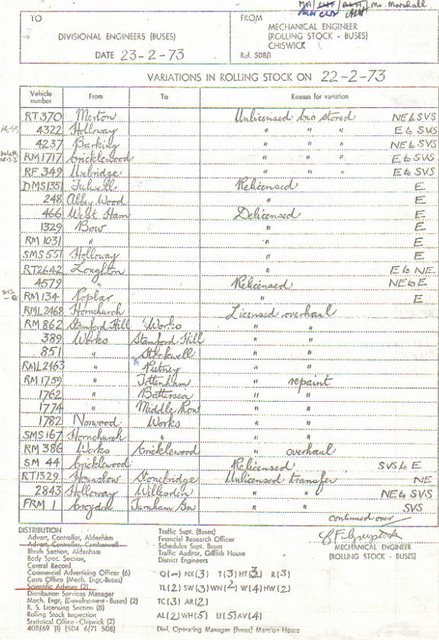 Mr. Marshall
TO
DIVISIONAL ENGINEERS (BUSES)
DATE 23-2-73
FROM
MECHANICAL ENGINEER
(ROLLING STOCK - BUSES)
CHISWICK
Ref. 508/1
VARIATIONS IN ROLLING STOCK ON 22-2-73
Vehicle number From To Reason for variation
RT 370 Merton Unlicensed bus stored NE to SVS
4322 Holloway " " " E to SVS
4237 Barking " " " NE to SVS
RM 1717 Cricklewood " " " E to SVS
RF 349 Uxbridge " " " E to SVS
DMS 1351 Fulwell Relicensed E
248 Abbey Wood " E
466 West Ham Delicensed E
1329 Bow " E
RM 1031 " " E
SMS 551 Holloway " E
RT 2642 Loughton " E to NE
4579 " Relicensed NE to E
RM 134 Poplar " E
RML 2468 Hornchurch Licensed overhaul
RM 862 Stamford Hill Works " "
389 Works Stamford Hill " "
851 " Stockwell " "
RML 2463 " Putney " "
RM 1759 " Tottenham " repaint
1762 " Battersea " "
1774 " Middle Row " "
1782 Norwood Works " "
SMS 167 Hornchurch " " "
RM 386 Works Cricklewood " overhaul
SM 44 Cricklewood Relicensed SVS to E
RT 1329 Hounslow Stonebridge Unlicensed transfer NE
2843 Holloway Willesden " " NE to SVS
FRM 1 Croydon Turnham Gn " " SVS
continued over
DISTRIBUTION
Advert. Controller, Aldenham
Advert. Controller, Camberwell
Blinds Section, Aldenham
Body Spec. Section,
Central Record
Commercial Advertising Officer (6)
Costs Office (Mech. Engr.-Buses)
Scientific Adviser (2)
Distribution Services Manager
Mech. Engr. (Development - Buses) (2)
R. S. Licensing Section (8)
Rolling Stock Inspection
Statistical Office (2)
408/69 (1) (504 6/71 508)
Traffic Supt. (Buses)
Financial Research Officer
Schedules Supt. Buses
Traffic Auditor, Griffith House
District Engineers
MECHANICAL ENGINEER
(ROLLING STOCK - BUSES)
Divl. Operating Manager (Buses) Mansion House